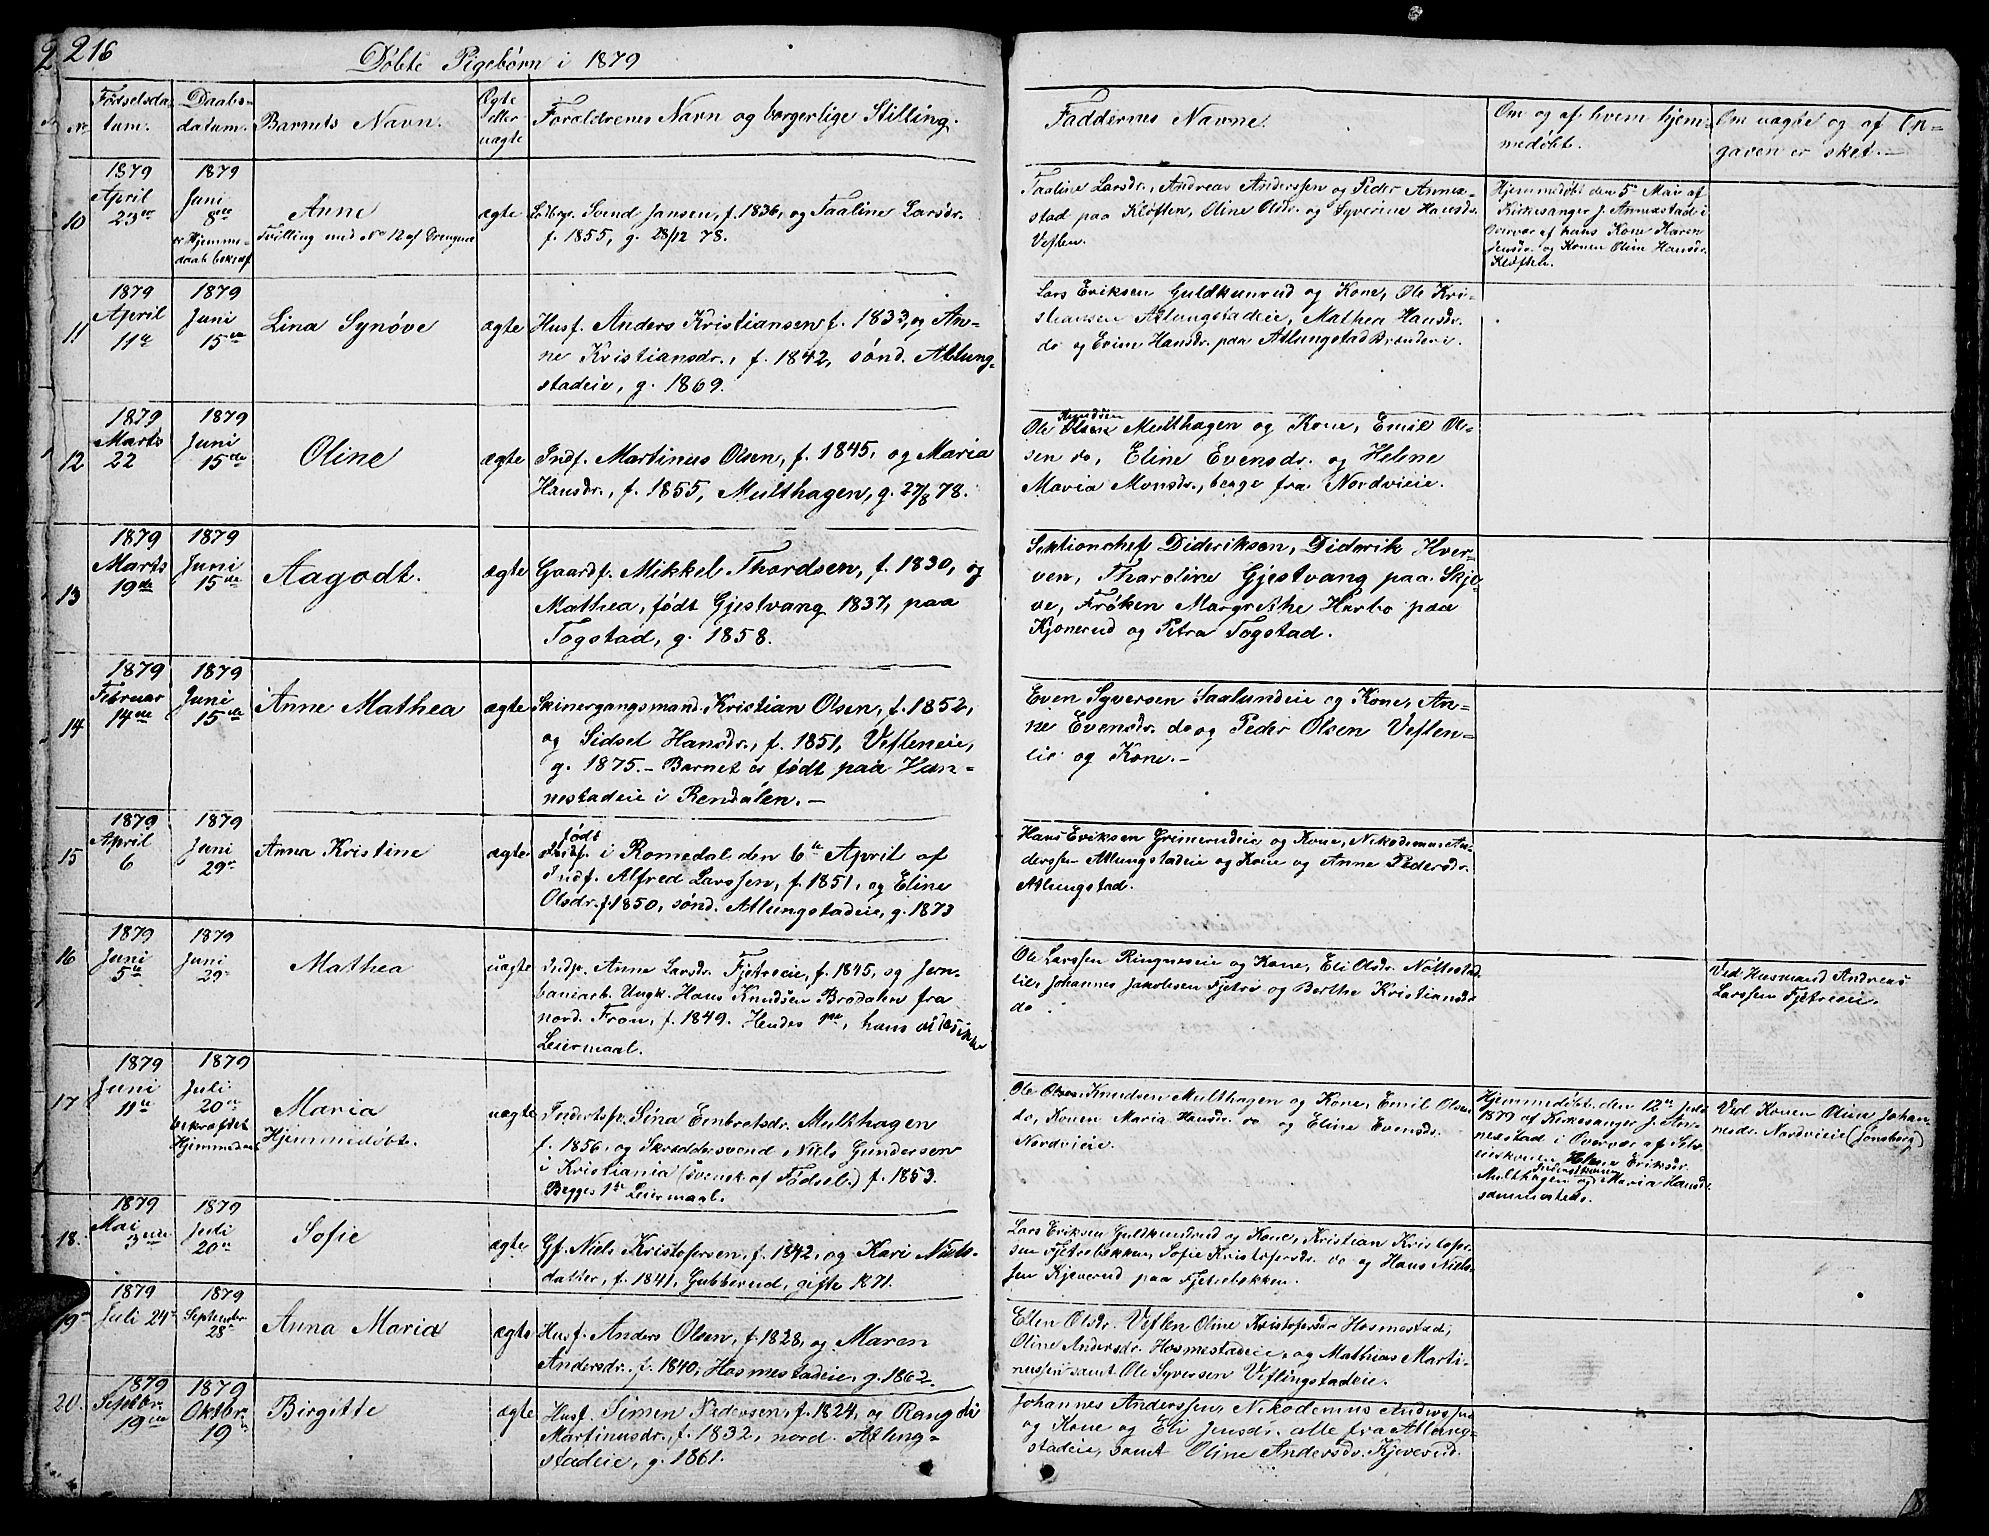 216
Døbte Pigebørn i 1879
No
Fødselsda-
tum.
Daabs-
datum.
Barnets Navn.
Ægte
eller
uægte
Forældrenes Navn og borgerlige Stilling.
Faddernes Navne.
Om og af hvem hjem-
medøbt.
Om uægte og af
gaven er sket.
10
1879
April
23de
1879
Juni
8de
er Hjemme-
daab bekræf.
Anne
Tvilling med No 12 af Drengene
ægte
Svend Jansen, f. 1836, og Taaline Larsdr.
f. 1855, g. 28/12 78.
Taaline Larsdr., Andreas Anderssen og Peder Annex-
stad paa Kløften, Oline Olsdr. og Syverine Hansdr.
Veflen.
Hjemmedøbt den 5te Mai af
Kirkesanger J. Annexstad i
Overvær af hans Kone Karen
Jensdr. og Konen Oline Hansdr.
Kløften.
11
1879
April
11te
1879
Juni
15de
Lina Synøve
ægte
Husf. Anders Kristiansen, f. 1833, og An-
ne Kristiansdr., f. 1842, sønd. Atlung-
stadeie, g. 1869.
Lars Eriksen Guldkunrud og Kone, Ole Kri-
stiansen Atlungstadeie, Mathea Hansdr.
do og Evine Hansdr. paa Atlungstad Brænderi.
12
1879
Marts
22
1879
Juni
15de
Oline
ægte
Indf. Martinus Olsen, f. 1845, og Maria
Hansdr., f. 1855, Multhagen, g. 27/8 78.
Knudsen
Ole Olsen Multhagen og Kone, Emil Ol-
sen do, Eline Evensdr. og Helene
Maria Monsdr., begge fra Nordvieie.
13
1879
Marts
19de
1879
Juni
15de
Aagodt.
ægte
Gaardf. Mikkel Thordsen, f. 1830, og
Mathea, født Gjestvang 1837, paa
Togstad, g. 1858.
Sektionchef Dideriksen, Diderik Hver-
ven, Tharoline Gjestvang paa Skje-
ve, Frøken Margrethe Harbo paa
Kjonerud og Petra Togstad.
14
1879
Februar
14de
1879
Juni
15de
Anne Mathea
ægte
Skinergangsmand Kristian Olsen, f. 1852,
og Sidsel Hansdr., f. 1851, Vefleneie,
g. 1875. – Barnet er født paa Han-
nestadeie i Rendalen. –
Even Syversen Saalundeie og Kone, An-
ne Evensdr. do og Peder Olsen Veflen-
eie og Kone. –
15
1879
April
6
1879
Juni
29e
Anna Kristine
ægte
født
i Romedal den 6te April af
Indf. Alfred Larssen, f. 1851, og Eline
Olsdr. f. 1850, sønd. Atlungstadeie, g. 1873
Hans Eriksen Grimerudeie og Kone, Nikodemus An-
derssen Atlungstadeie og Kone og Anne Pedersdr.
Atlungstad.
16
1879
Juni
5te
1879
Juni
29e
Mathea
uægte
Indp. Anne Larsdr. Fjetreeie, f. 1845, og Jern-
banearb. Ungk. Hans Knudsen Brodalen fra
nord. Fron, f. 1849. Hendes 1ste, hans
Leiermaal.
Ole Larssen Ringneseie og Kone, Eli Olsdr. Nøttestad
eie, Johannes Jakobsen Fjetre og Berthe Kristiansdr.
do
Ved Husmand Andreas
Larssen Fjetreeie.
17
1879
Juni
11te
1879
Juli
20de
bekræftet
Hjemmedaab
Maria
Hjemmedøbt.
uægte
Inderstp. Sina Embretsdr. Multhagen
f. 1856, og Skræddersvend Niels Gundersen
i Kristiania (svensk af Fødsel) f. 1853.
Begges 1ste Leiermaal.
Ole Olsen Knudsen Multhagen og Kone, Emil Olsen
do, Konen Maria Hansdr. do og Eline Evensdr.
Nordvieie.
Hjemmedøbt den 12te Juli
1879 af Kirkesanger J. An-
nexstad i Overvær af
Eriksdr.
Multhagen og Maria Hansdr.
sammesteds.
Ved Konen Oline Johan-
nesdr. Nordvieie (Jønsberg)
18.
1879
Mai
3die
1879
Juli
20de
Sofie
ægte
Gf. Niels Kristofersen, f. 1842, og Kari Niels-
datter, f. 1841, Gubberud, gifte 1871.
Lars Eriksen Guldkunrud og Kone, Kristian Kristofer-
sen Fjetrebakken, Sofie Kristofersdr. do og Hans Niels-
sen Kjeverud paa Fjetrebakken.
19
1879
Juli 24de
1879
September
28de
Anna Maria
ægte
Husf. Anders Olsen, f. 1828, og Maren
Andersdr., f. 1840, Hosmestadeie, g. 1862.
Ellen Olsdr. Veflen Oline Kristofersdr Hosmestad,
Oline Andersdr. Hosmestadeie, og Mathias Marti-
nussen samt Ole Syversen Veflingstadeie.
20.
1879
Septbr.
19de
1879
Oktbr.
19
Birgitte
ægte
Husf. Simen Pedersen, f. 1824, og Rangdi
Martinusdr., f. 1832, nord. Atlung-
stadeie, g. 1861.
Johannes Anderssen, Nikodemus Anderssen
og Kone og Eli Jensdr. alle fra Atlung-
stadeie, samt Oline Andersdr. Kjeverud.